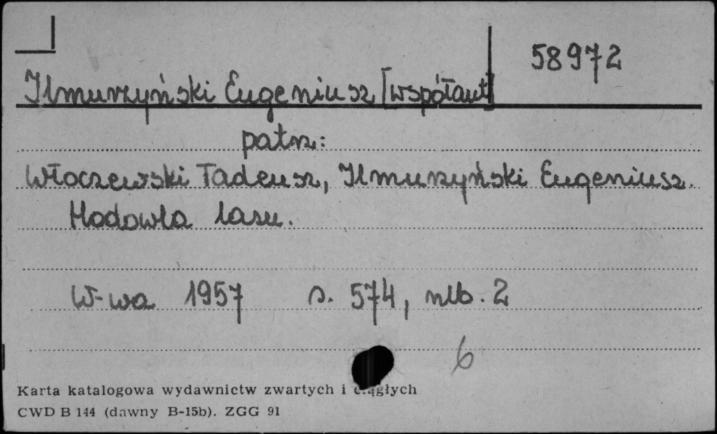 58972
Ilmurzyński Eugeniusz [współaut]
patrz:
Włoczewski Tadeusz, Ilmurzyński Eugeniusz.
Hodowla lasu.
W-wa 1957 s. 574, nlb. 2
6
Karta katalogowa wydawnictw zwartych i ciągłych
CWD B 144 (dawny B-15b). ZGG 91